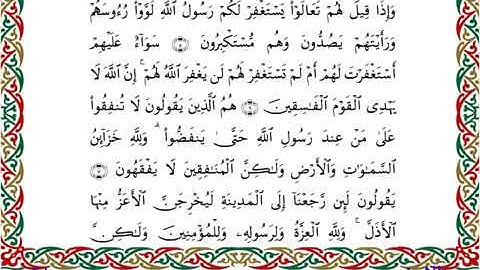 وَإِذَا قِيلَ لَهُمْ تَعَالَوْا۟ يَسْتَغْفِرْ لَكُمْ رَسُولُ ٱللَّهِ لَوَّوْا۟ رُءُوسَهُمْ
وَرَأَيْتَهُمْ يَصُدُّونَ وَهُم مُّسْتَكْبِرُونَ ۝٥ سَوَآءٌ عَلَيْهِمْ
أَسْتَغْفَرْتَ لَهُمْ أَمْ لَمْ تَسْتَغْفِرْ لَهُمْ لَن يَغْفِرَ ٱللَّهُ لَهُمْ ۚ إِنَّ ٱللَّهَ لَا
يَهْدِى ٱلْقَوْمَ ٱلْفَـٰسِقِينَ ۝٦ هُمُ ٱلَّذِينَ يَقُولُونَ لَا تُنفِقُوا۟
عَلَىٰ مَنْ عِندَ رَسُولِ ٱللَّهِ حَتَّىٰ يَنفَضُّوا۟ ۗ وَلِلَّهِ خَزَآئِنُ
ٱلسَّمَـٰوَٰتِ وَٱلْأَرْضِ وَلَـٰكِنَّ ٱلْمُنَـٰفِقِينَ لَا يَفْقَهُونَ ۝٧
يَقُولُونَ لَئِن رَّجَعْنَآ إِلَى ٱلْمَدِينَةِ لَيُخْرِجَنَّ ٱلْأَعَزُّ مِنْهَا
ٱلْأَذَلَّ ۚ وَلِلَّهِ ٱلْعِزَّةُ وَلِرَسُولِهِۦ وَلِلْمُؤْمِنِينَ وَلَـٰكِنَّ